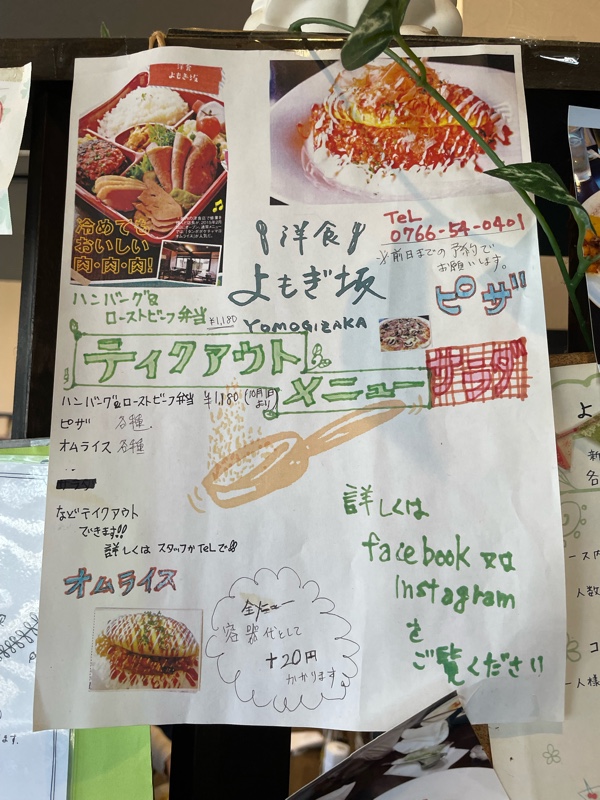 洋食
よもぎ坂
冷めても
おいしい
肉・肉・肉!
洋食
よもぎ坂
YOMOGIZAKA
TeL
0766-54-0401
※前日までの予約で
お願いします。
ピザ
ハンバーグ&
ローストビーフ弁当 ¥1,180
テイクアウト
メニュー
サラダ
ハンバーグ&ローストビーフ弁当 ¥1,180 (10月1日より)
ピザ 各種
オムライス 各種
などテイクアウト
できます!!
詳しくは スタッフか TeLで
オムライス
全メニュー
容器代として
+20円
かかります
詳しくは
facebook 又は
Instagram
を
ご覧ください